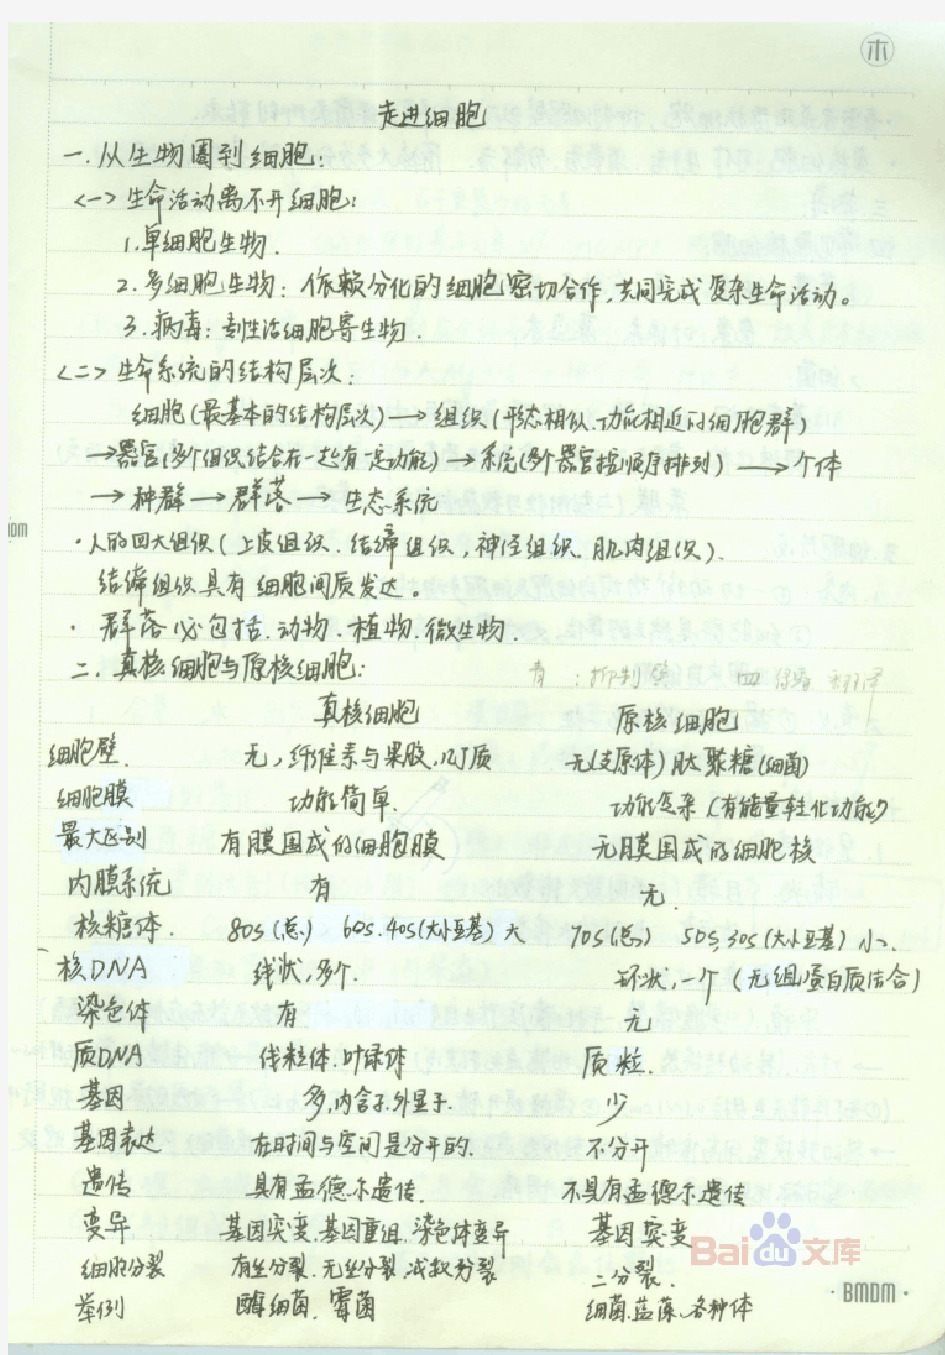 木
走进细胞
一.从生物圈到细胞:
<一>生命活动离不开细胞:
1.单细胞生物.
2.多细胞生物:依赖分化的细胞密切合作,共同完成复杂生命活动。
3.病毒:专性活细胞寄生物.
<二>生命系统的结构层次:
细胞(最基本的结构层次)→组织(形态相似.功能相近的细胞群)
→器官(多个组织结合在一起有一定功能)→系统(多个器官按顺序排列)→个体
→种群→群落→生态系统
·人的四大组织(上皮组织.结缔组织,神经组织.肌肉组织).
结缔组织具有细胞间质发达。
·群落必包括.动物.植物.微生物.
二.真核细胞与原核细胞:
真核细胞 原核细胞
细胞壁. 无,纤维素与果胶,几丁质 无(支原体)肽聚糖(细菌)
细胞膜 功能简单. 功能复杂(有能量转化功能)
最大区别 有膜围成的细胞膜 无膜围成的细胞核
内膜系统 有 无
核糖体. 80S(总) 60S.40S(大小亚基)大 70S(总) 50S,30S(大小亚基)小.
核DNA 线状,多个. 环状,一个(无组蛋白质结合)
染色体 有 无
质DNA 线粒体.叶绿体 质粒.
基因 多,内含子.外显子. 少
基因表达 在时间与空间是分开的. 不分开
遗传 具有孟德尔遗传. 不具有孟德尔遗传
变异 基因突变.基因重组.染色体变异 基因突变
细胞分裂 有丝分裂.无丝分裂.减数分裂 二分裂.
举例 酵细菌.霉菌 细菌.蓝藻.各种体
Baidu文库
·BMDM·